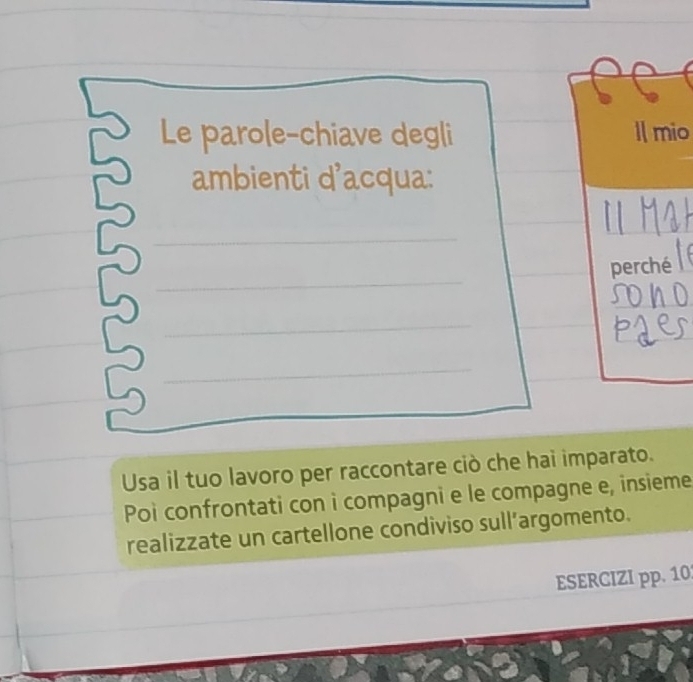 Le parole-chiave degli
ambienti d'acqua:
Il mio
Il Mar
perché le
sono
paes
Usa il tuo lavoro per raccontare ciò che hai imparato.
Poi confrontati con i compagni e le compagne e, insieme
realizzate un cartellone condiviso sull'argomento.
ESERCIZI pp. 10